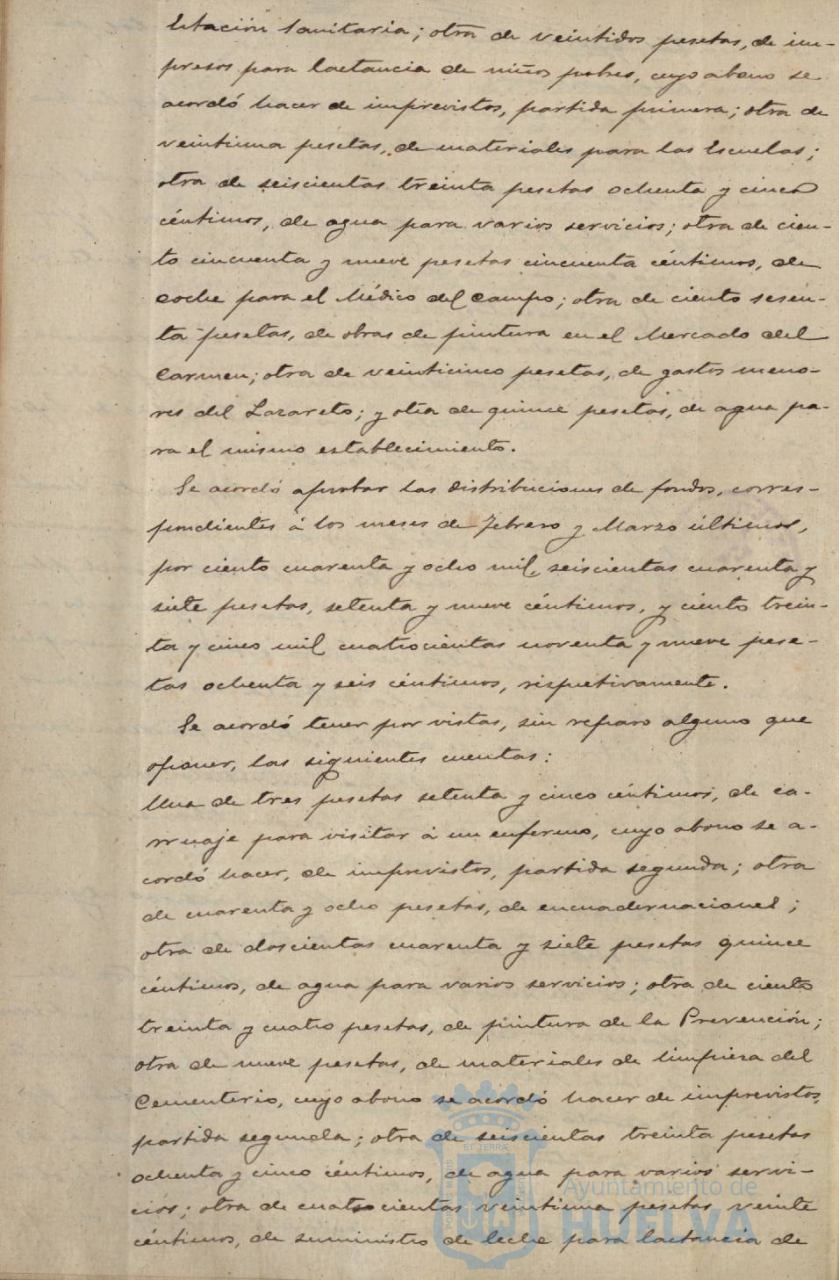 Estación Sanitaria; otra de veintidos pesetas, de im-
presos para lactancia de niños pobres, cuyo abono se
acordó hacer de imprevistos, partida primera; otra de
veintiuna pesetas, de materiales para las Escuelas;
otra de seiscientas treinta pesetas ochenta y cinco
céntimos, de agua para varios servicios; otra de cien-
to cincuenta y nueve pesetas cincuenta céntimos, de
coche para el Médico del Campo; otra de ciento sesen-
ta pesetas, de obras de pintura en el Mercado del
Carmen; otra de veinticinco pesetas, de gastos meno-
res del Lazareto; y otra de quince pesetas, de agua pa-
ra el mismo establecimiento.
Se acordó aprobar las distribuciones de fondos, corres-
pondientes á los meses de Febrero y Marzo últimos,
por ciento cuarenta y ocho mil seiscientas cuarenta y
siete pesetas, setenta y nueve céntimos, y ciento trein-
ta y cinco mil cuatrocientas noventa y nueve pese-
tas ochenta y seis céntimos, respetivamente.
Se acordó tener por vistas, sin reparo alguno que
oponer, las siguientes cuentas:
Una de tres pesetas setenta y cinco céntimos, de ca-
rruaje para visitar á un enfermo, cuyo abono se a-
cordó hacer, de imprevistos, partida segunda; otra
de cuarenta y ocho pesetas, de encuadernaciones;
otra de doscientas cuarenta y siete pesetas quince
céntimos, de agua para varios servicios; otra de ciento
treinta y cuatro pesetas, de pintura de la Prevención;
otra de nueve pesetas, de materiales de limpieza del
Cementerio, cuyo abono se acordó hacer de imprevistos,
partida segunda; otra de seiscientas treinta pesetas
ochenta y cinco céntimos, de agua para varios servi-
cios; otra de cuatrocientas veintiuna pesetas veinte
céntimos, de suministro de leche para lactancia de
Ayuntamiento de
HUELVA